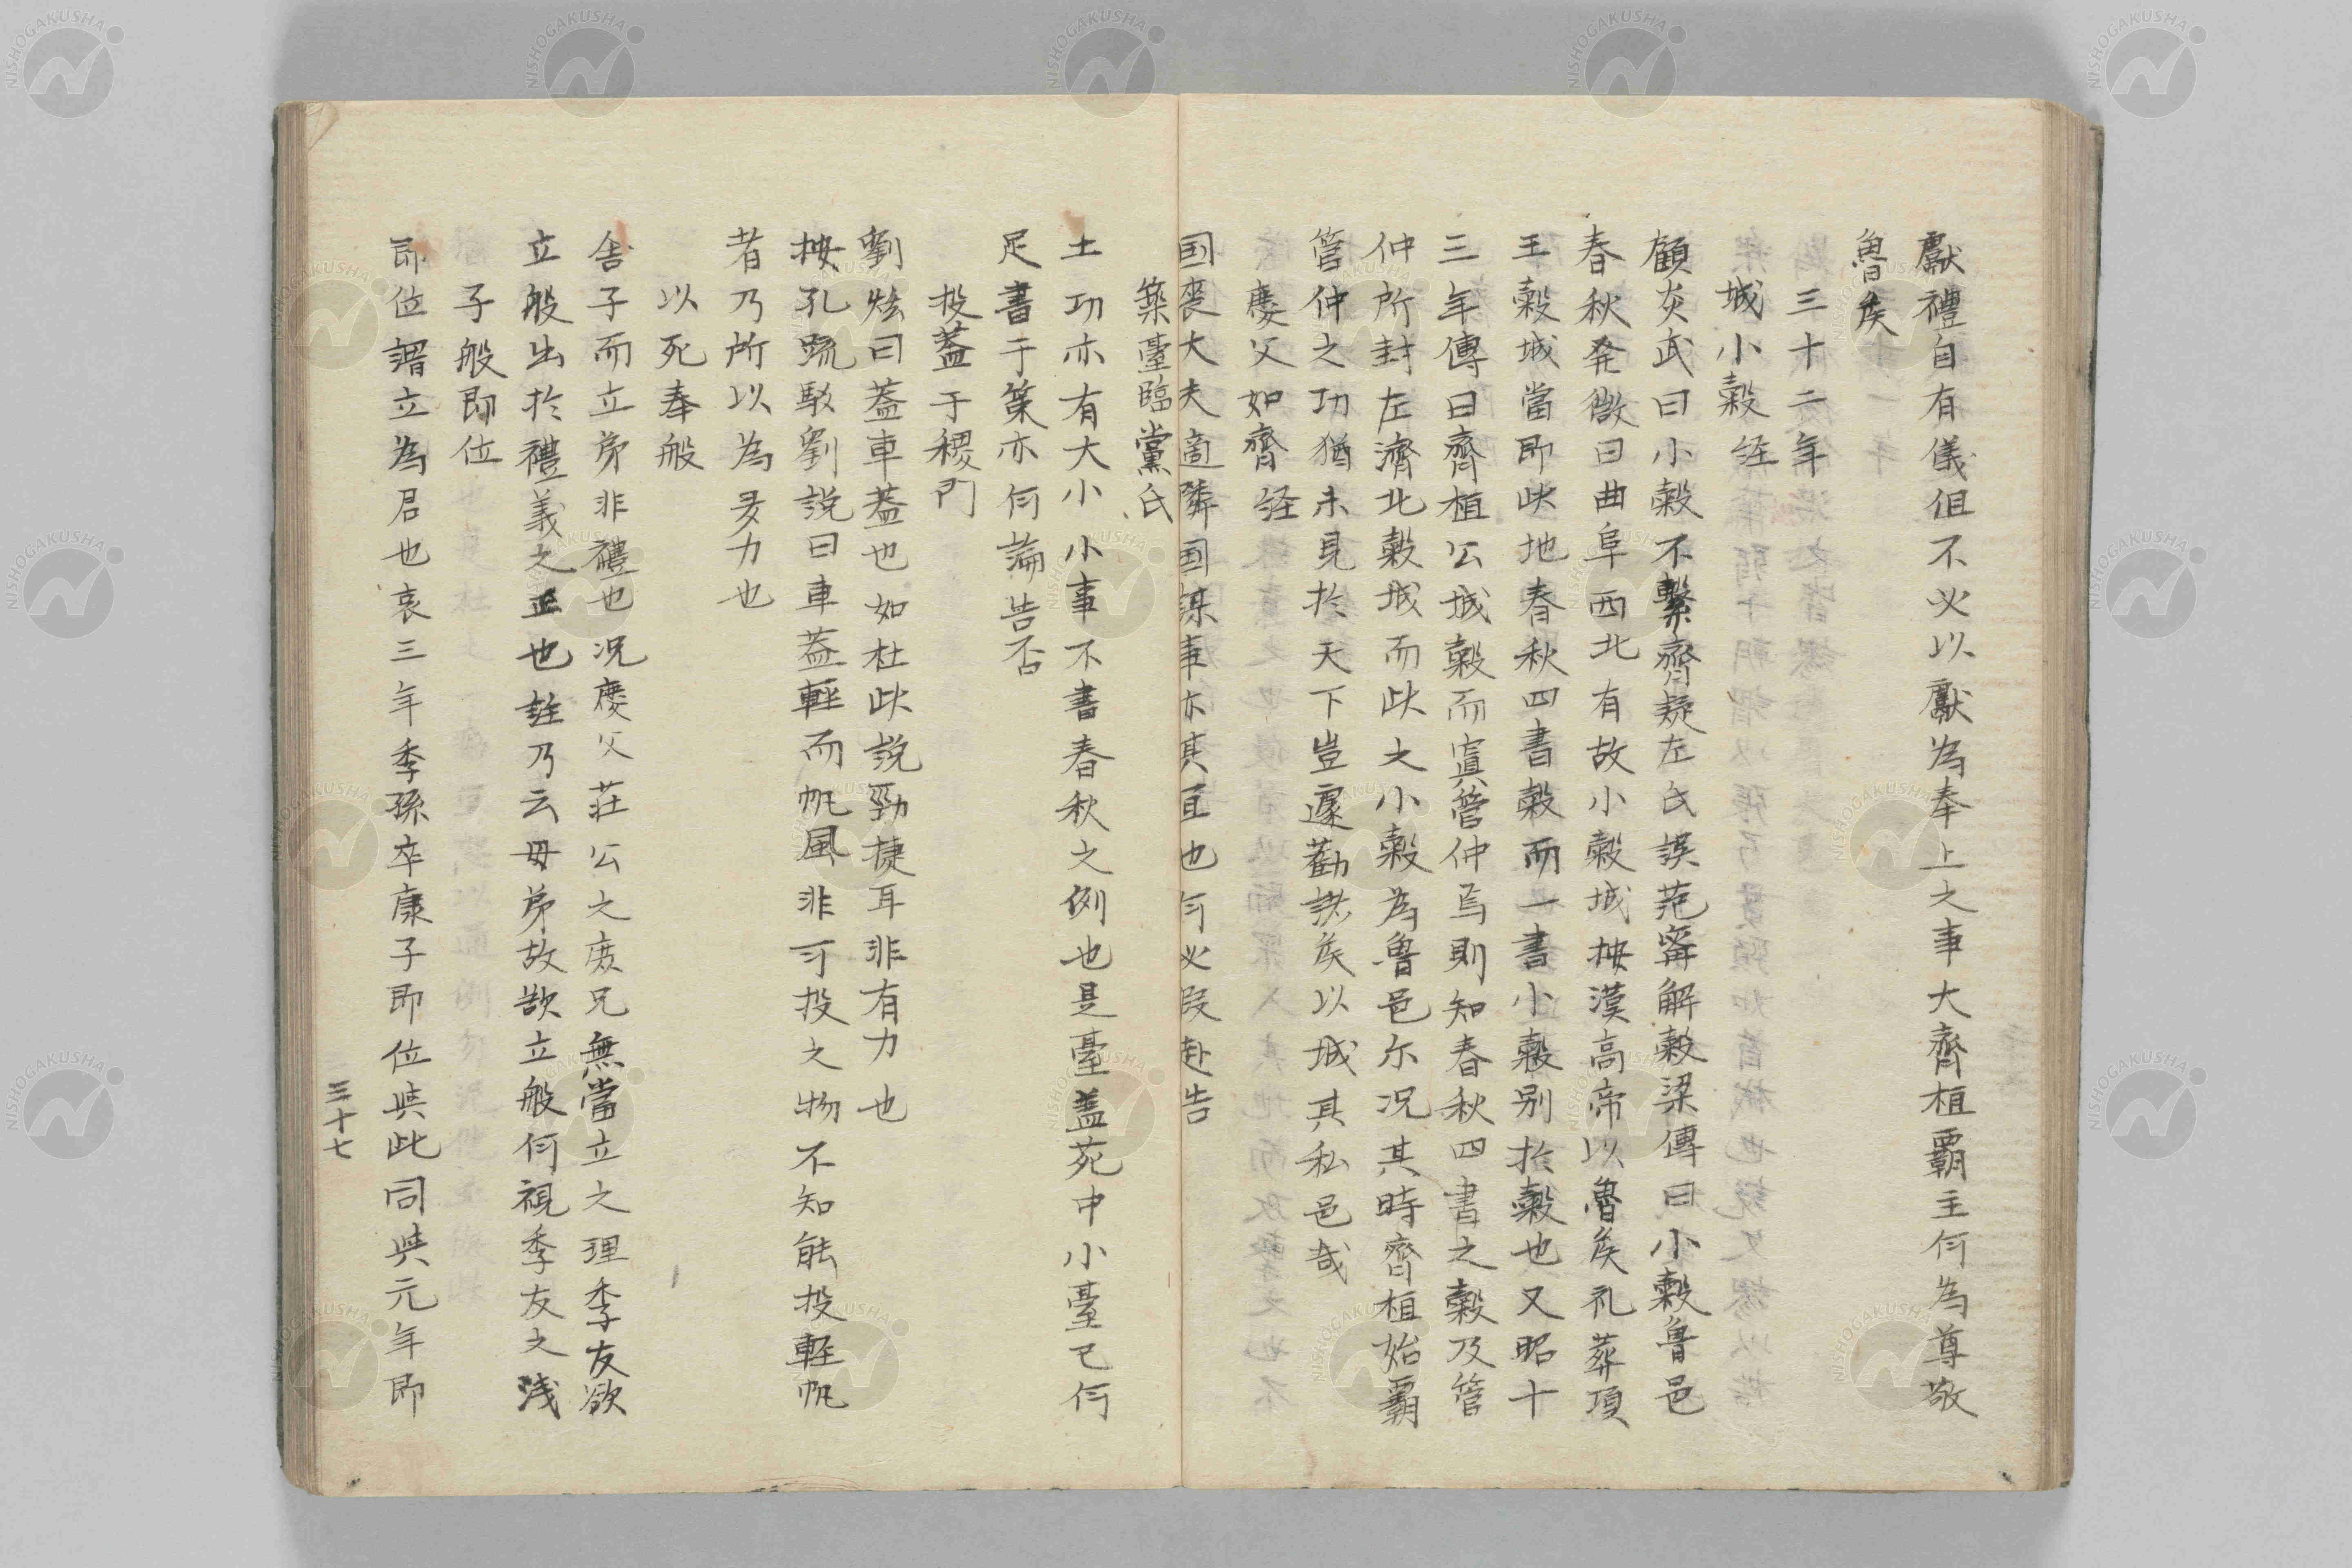 獻禮自有儀但不必以獻為奉上之事大齊桓霸主何為尊敬
魯矦
三十二年
城小穀 经
顧炎武曰小穀不繫齊疑左氏誤范甯解穀梁傳曰小穀魯邑
春秋発微曰曲阜西北有故小穀城按漢高帝以魯矦礼葬項
王穀城當即此地春秋四書穀而一書小穀別於穀也又昭十
三年傳曰齊桓公城穀而寘管仲焉則知春秋四書之穀及管
仲所封左濟北穀城而此之小穀為魯邑尔况其時齊桓始霸
管仲之功猶未見於天下豈遽勸諸矦以城其私邑哉
慶父如齊 经
国喪大夫適隣国謀事亦其宜也何必叚赴告
築臺臨黨氏
土功亦有大小小事不書春秋之例也是臺蓋苑中小臺已何
足書于策亦何論告否
投蓋于稷門
劉炫曰蓋車蓋也如杜此説勁捷耳非有力也
按孔疏駁劉説曰車蓋輕而帆風非可投之物不知能投軽帆
者乃所以為多力也
以死奉般
舎子而立弟非禮也况慶父荘公之庶兄無當立之理季友欲
立般出於禮義之正也註乃云毋弟故欲立般何視季友之浅
子般即位
即位謂立為君也哀三年季孫卒康子即位與此同與元年即
三十七